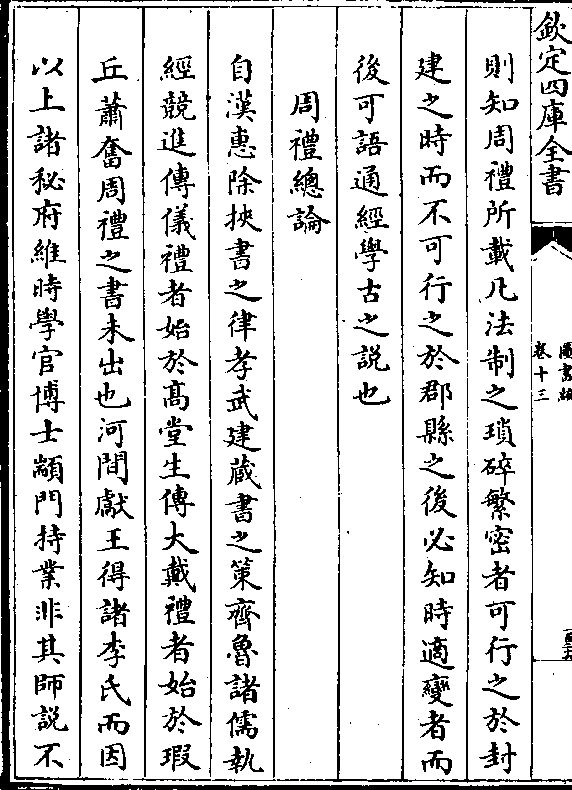 欽定四庫全書
圖書編
卷十三
則知周禮所載凡法制之瑣碎繁密者可行之於封
建之時而不可行之於郡縣之後必知時適變者而
後可語通經學古之説也
周禮總論
自漢惠除挾書之律孝武建蔵書之策齊魯諸儒執
經競進傳儀禮者始於髙堂生傳大戴禮者始於瑕
丘蕭奮周禮之書未出也河間獻王得諸李氏而因
以上諸秘府維時學官博士顓門持業非其師説不